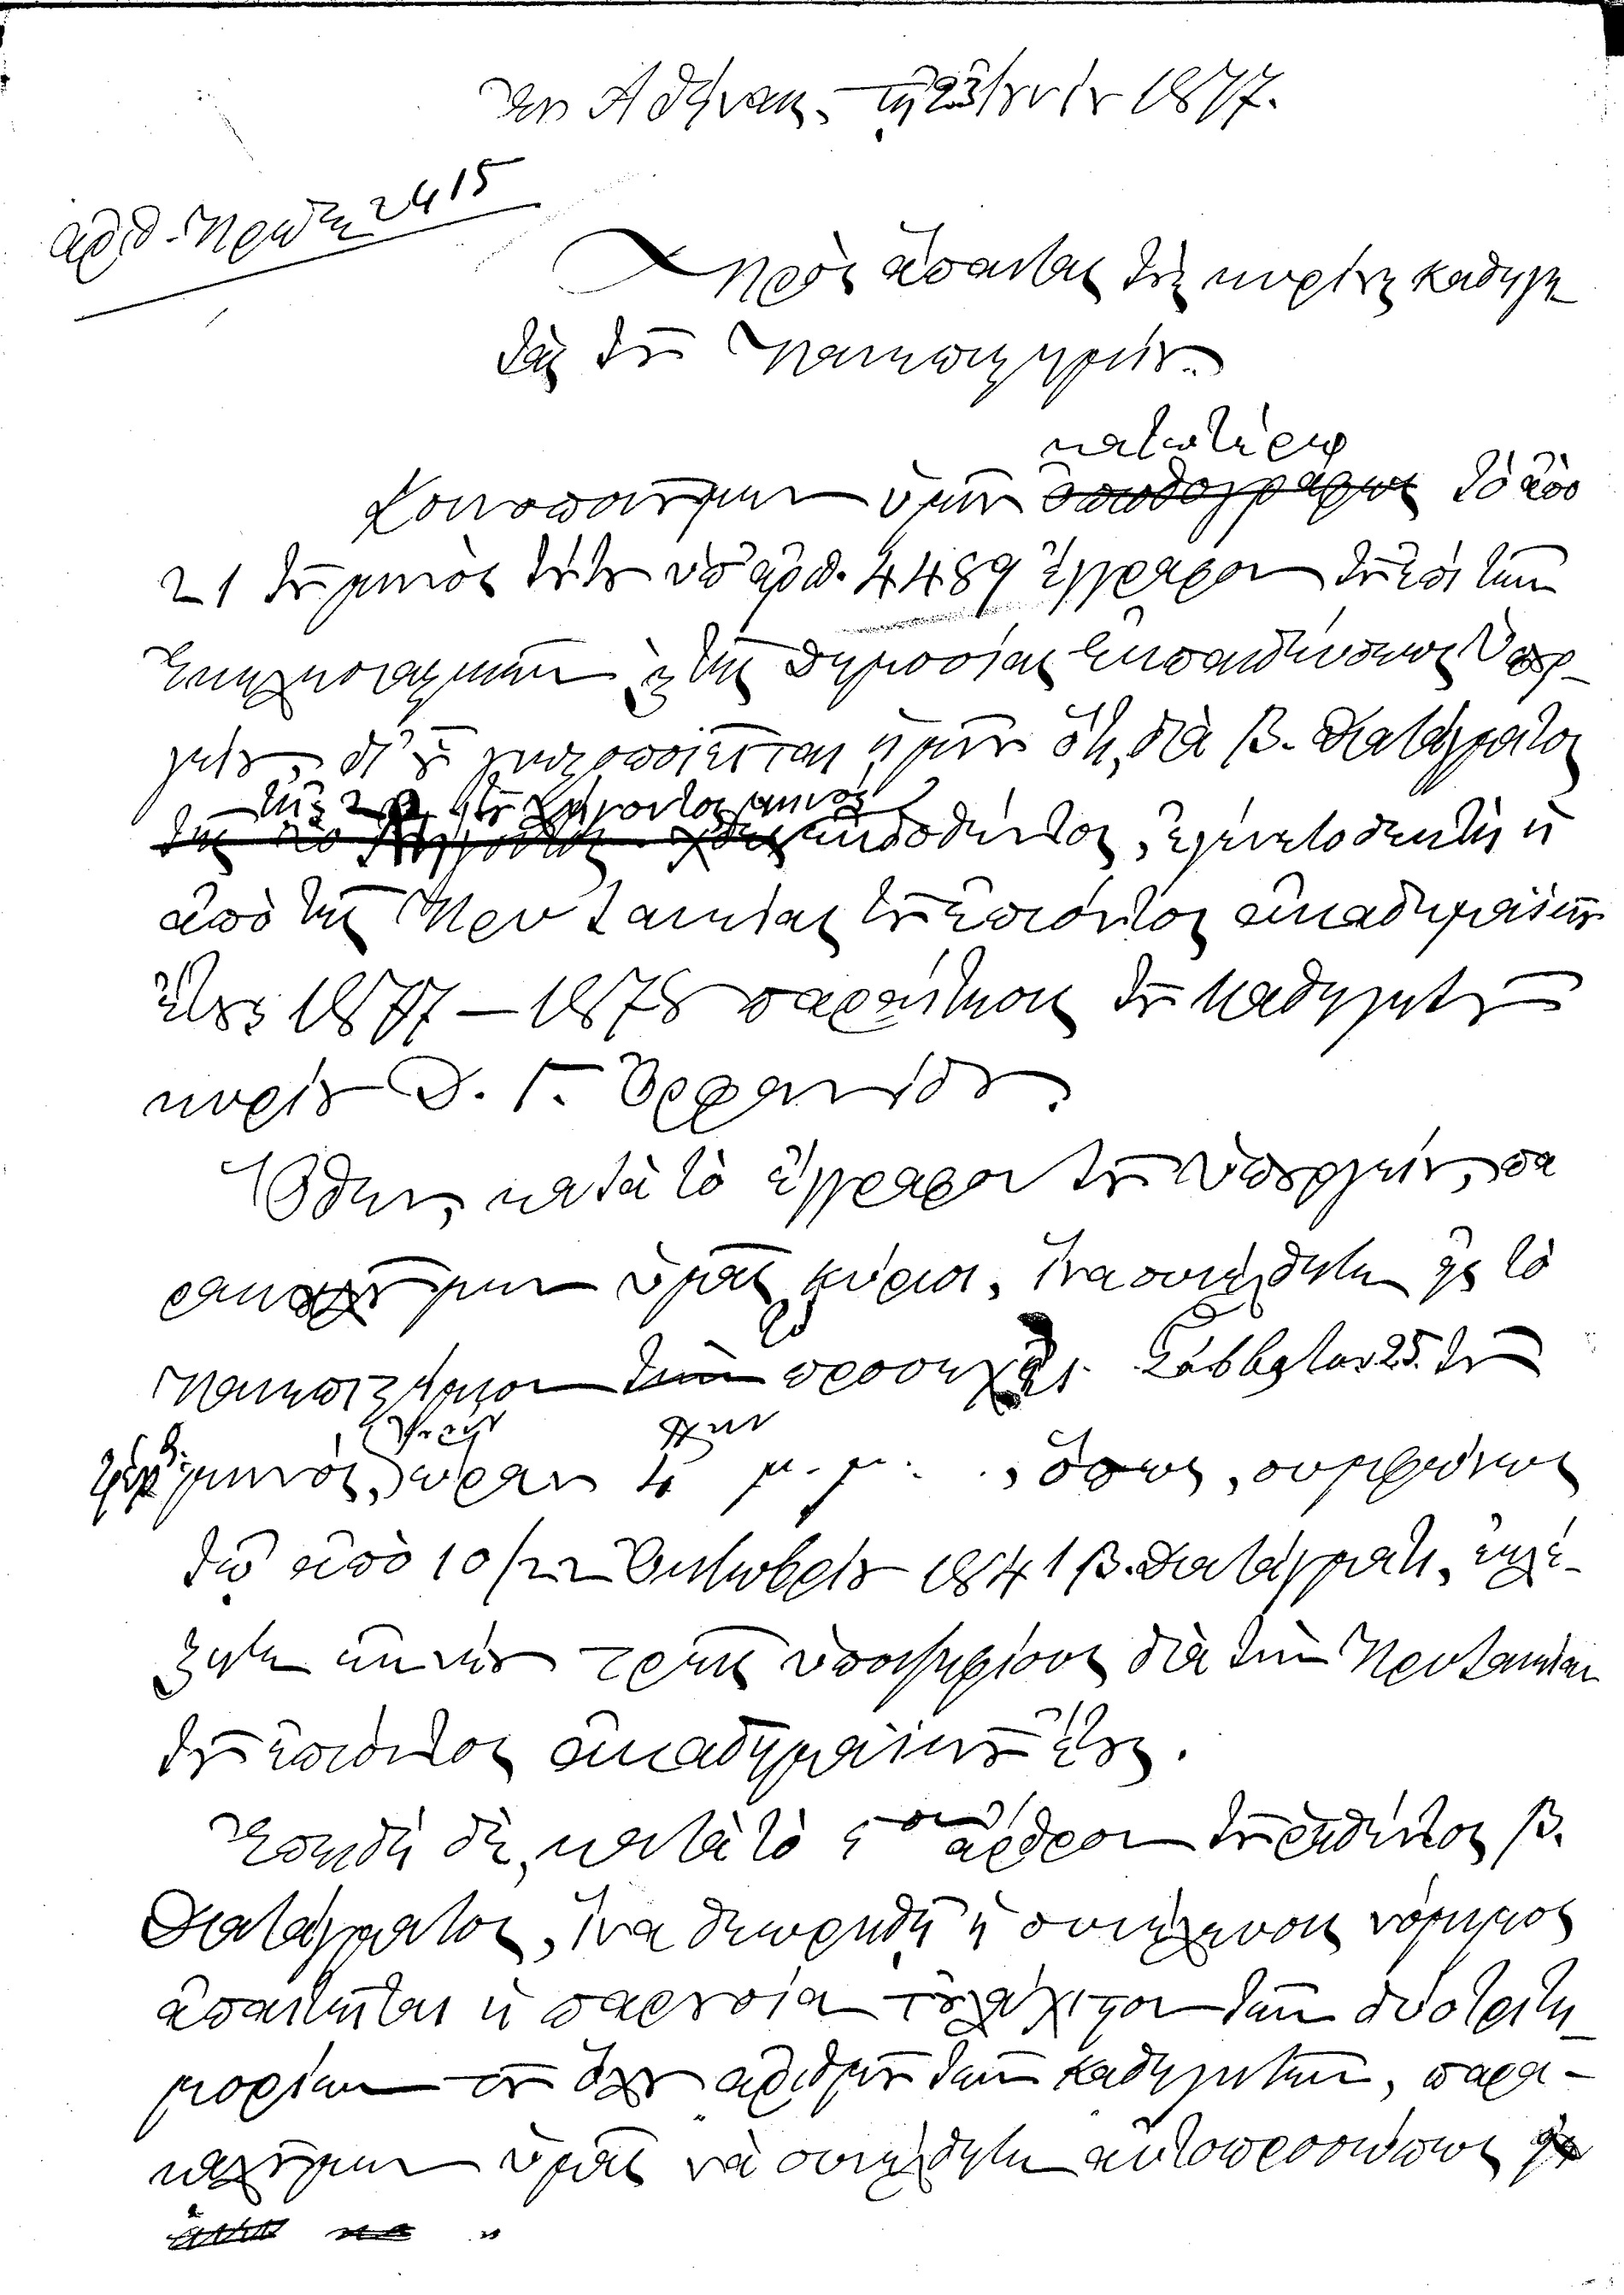 Ἐν Ἀθήναις, τῇ 23 Ἰουνίου 1877.
ἀριθ. Πρωτ. 2415
Πρὸς ἅπαντας τοὺς κυρίους καθηγη
τὰς τοῦ Πανεπιστημίου.
κατωτέρω
Κοινοποιοῦμεν ὑμῖν ὀπισθογράφως τὸ ἀπὸ
21 τοῦ μηνὸς τούτου ὑπ' ἀριθ. 4489 ἔγγραφον τοῦ ἐπὶ τῶν
Ἐκκλησιαστικῶν καὶ τῆς Δημοσίας Ἐκπαιδεύσεως Ὑπουρ-
γείου, δι' οὗ γνωστοποιεῖται ἡμῖν ὅτι, διὰ Β. Διατάγματος
τῆς τοῦ λήγοντος μηνὸς
ἐκδοθέντος, ἐγένετο δεκτὴ ἡ
ἀπὸ τῆς Πρυτανείας τοῦ ἐπιόντος ἀκαδημαϊκοῦ
ἔτους 1877 – 1878 παραίτησις τοῦ καθηγητοῦ
κυρίου Δ. Γ. Ὀρφανίδου.
Ὅθεν, κατὰ τὸ ἔγγραφον τοῦ Ὑπουργείου, πα
ρακαλοῦμεν ὑμᾶς, κύριοι, ἵνα συνέλθητε εἰς τὸ
τὸ
Πανεπιστήμιον τὴν προσεχὲς Σάββατον 25 τοῦ
ὥραν 4 μ. μ. , ὅπως, συμφώνως
τῷ ἀπὸ 10/22 Ὀκτωβρίου 1841 Β. Διατάγματι, ἐκλέ-
ξητε ἐκ νέου τρεῖς ὑποψηφίους διὰ τὴν Πρυτανείαν
τοῦ ἐπιόντος ἀκαδημαϊκοῦ ἔτους.
Ἐπειδὴ δὲ, κατὰ τὸ ϛον ἄρθρον τοῦ ῥηθέντος Β.
Διατάγματος, ἵνα θεωρηθῇ ἡ συνέλευσις νόμιμος
ἀπαιτεῖται ἡ παρουσία τοὐλάχιστον τῶν δύο τριτη-
μορίων τοῦ ὅλου ἀριθμοῦ τῶν καθηγητῶν, παρα-
καλοῦμεν ὑμᾶς νὰ συνέλθητε αὐτοπροσώπως